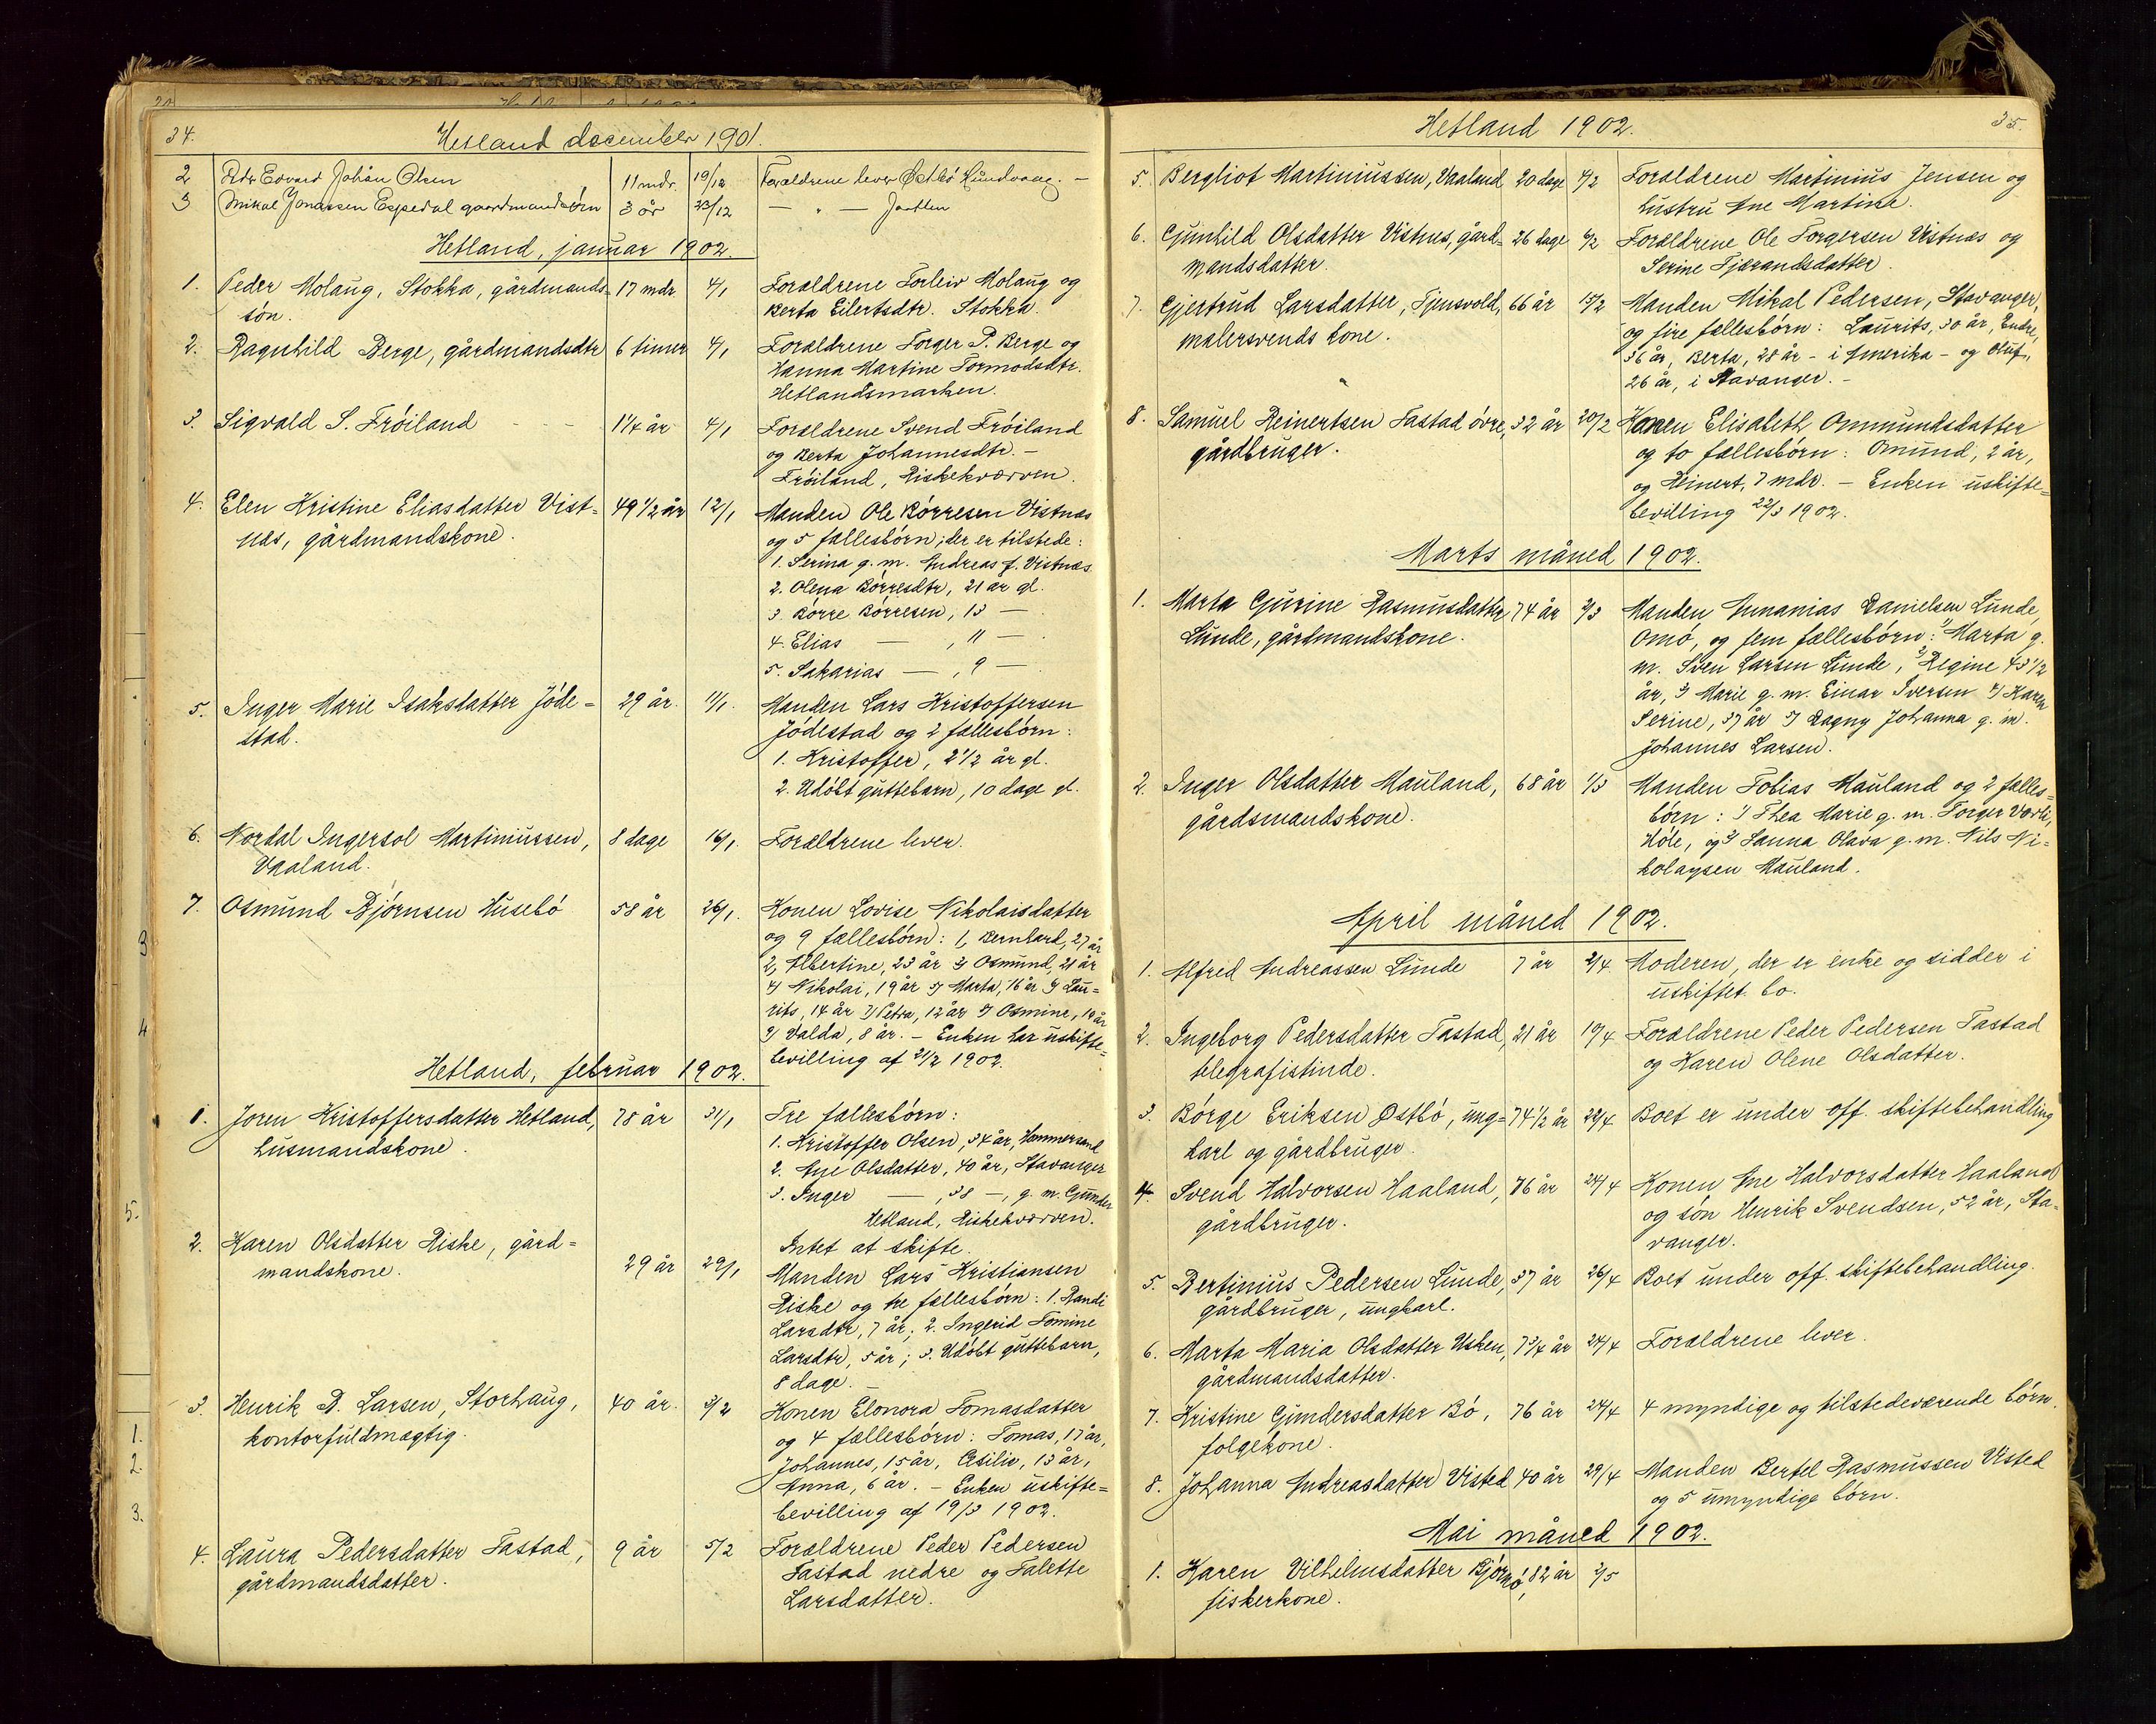 34.
Hetland december 1901.
2 Peder Edvard Johan Olsen 11 mdr. 19/12 Forældrene lever Østbö Hundvaag. —
3 Mikal Jonassen Espedal gaardmandsörn 3 år 23/12 — " — Jaatten
Hetland, januar 1902.
1. Peder Molaug, Stokka, gårdmands- 17 mdr 4/1 Forældrene Torleiv Molaug og
sön. Berta Eilertsdtr. Stokka.
2. Ragnhild Berge, gårdmandsdtr 6 timer 4/1 Forældrene Torger P. Berge og
Hanna Martine Tormodsdtr.
Hetlandsmarken.
3. Sigvald S. Fröiland - - 1 1/4 år 4/1 Forældrene Svend Fröiland
og Berta Johannesdtr. —
Fröiland, Riskekværven.
4. Elen Kristine Eliasdatter Vist= 49 1/2 år 12/1 Manden Ole Börresen Vistnæs
næs, gårdmandskone. og 5 fællesbörn; der er tilstede:
1. Serina g. m. Andreas J. Vistnæs
2. Olena Börresdtr, 21 år gl.
3 Börre Börresen, 13 —
4. Elias — , 11 —
5. Sakarias — , 9 —
5. Inger Marie Isaksdatter Jöde= 29 år. 11/1. Manden Lars Kristoffersen
stad. Jödestad og 2 fællesbörn:
1. Kristoffer, 2 1/2 år gl.
2. Udöbt guttebarn, 10 dage gl.
6. Nordal Ingersol Martiniussen, 8 dage 16/1. Forældrene lever.
Vaaland.
7. Osmund Bjørnsen Husebö 58 år 26/1. Konen Lovise Nikolaisdatter
og 9 fællesbörn: 1, Bernhard, 27 år
2, Albertine, 23 år 3) Osmund, 21 år
4) Nikolai, 19 år 5) Marta, 16 år 6) Lau=
rits, 14 år 7) Petra, 12 år 8) Osmine, 10 år
9) Valda, 8 år. — Enken har uskifte=
bevilling af 21/2 1902.
Hetland, februar 1902.
1. Joren Kristoffersdatter Hetland, 78 år 31/1 Tre fællesbörn:
husmandskone. 1. Kristoffer Olsen, 34 år, Hommersand
2. Ane Olsdatter, 40 år, Stavanger
3. Inger — , 38 —, g. m. Gunder
Hetland, Riskekværven.
Intet at skifte.
2. Karen Olsdatter Riske, gård= 29 år 29/1 Manden Lars Kristiansen
mandskone. Riske og tre fællesbörn: 1. Randi
Larsdtr, 7 år; 2. Ingerid Tomine
Larsdtr, 5 år; 3. Udöbt guttebarn,
8 dage. —
3. Henrik D. Larsen, Storhaug, 40 år. 3/2 Konen Elonora Tomasdatter
kontorfuldmægtig. og 4 fællesbörn: Tomas, 17 år,
Johannes, 15 år, Cesilie, 13 år,
Anna, 6 år. — Enken uskifte=
bevilling af 19/3 1902.
4. Laura Pedersdatter Tastad, 9 år 5/2 Forældrene Peder Pedersen
gårdmandsdatter. Tastad nedre og Talette
Larsdatter.
Hetland 1902. 35.
5. Bergliot Martiniussen, Vaaland 20 dage 4/2 Forældrene Martinius Jensen og
hustru Ane Martine.
6. Gunhild Olsdatter Vistnes, gård= 26 dage 6/2 Forældrene Ole Torgersen Vistnæs og
mandsdatter. Serine Tjerandsdatter.
7. Gjertrud Larsdatter, Tjensvold, 66 år 15/2 Manden Mikal Pedersen, Stavanger,
malersvends kone. og fire fællesbörn: Laurits, 30 år, Endre,
36 år, Berta, 28 år - i Amerika - og Oluf,
26 år, i Stavanger. —
8. Samuel Reinertsen Tastad övre, 32 år 20/2 Konen Elisabeth Ommundsdatter
gårdbruger. og to fællesbörn: Omund, 2 år,
og Reinert, 7 mdr. — Enken uskifte=
bevilling 22/3 1902.
Marts måned 1902.
1. Marta Gurine Rasmusdatter 74 år 3/3 Manden Annanias Danielsen Lunde,
Lunde, gårdmandskone. Omö, og fem fællesbörn: 1) Marta g.
m. Sven Larsen Lunde, 2) Regine 43 1/2
år, 3) Marie g. m. Einar Iversen 4) Karen
Serine, 37 år 5) Dagny Johanna g. m.
Johannes Larsen.
2. Inger Olsdatter Mauland, 68 år 1/3 Manden Tobias Mauland og 2 fælles=
gårdsmandskone. börn: 1) Thea Marie g. m. Torger
Höle, og 2) Hanna Olava g. m. Nils Ni=
kolaysen Mauland.
April måned 1902.
1. Alfred Andreassen Lunde 7 år 2/4. Moderen, der er enke og sidder i
uskiftet bo.
2. Ingeborg Pedersdatter Tastad, 21 år 19/4 Forældrene Peder Pedersen Tastad
telegrafistinde. og Karen Olene Olsdatter.
3. Börge Eriksen Østbö, ung= 74 1/2 år 22/4 Boet er under off. skiftebehandling
karl og gårdbruger.
4. Svend Halvorsen Haaland, 76 år 24/4 Konen Ane Halvorsdatter Haaland
gårdbruger. og sön Henrik Svendsen, 52 år, Sta=
vanger.
5. Bertinius Pedersen Lunde, 37 år 26/4 Boet under off. skiftebehandling.
gårdbruger, ungkarl.
6. Marta Maria Olsdatter Usken, 7 3/4 år 24/4 Forældrene lever.
gårdmandsdatter.
7. Kristine Gundersdatter Bö, 76 år 24/4 4 myndige og tilstedeværende börn.
folgekone.
8. Johanna Andreasdatter Visted 40 år 29/4 Manden Bertel Rasmussen Visted
og 5 umyndige börn.
Mai måned 1902.
1. Karen Vilhelmsdatter Bjørnö, 82 år 2/5
fiskerkone.
3
4
5.
1.
2.
3.